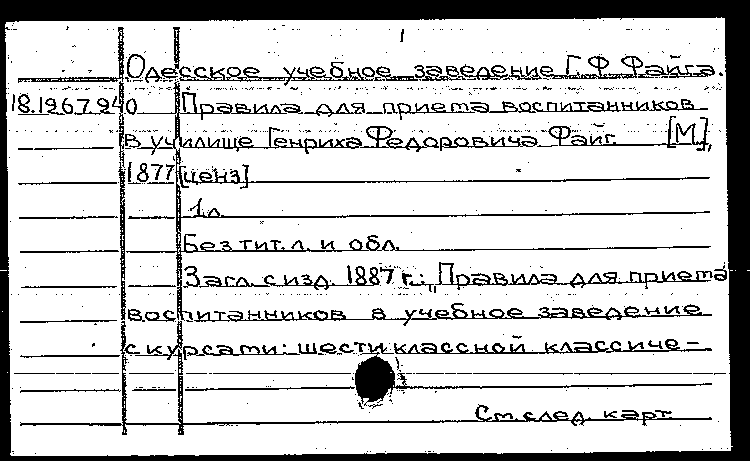 Одесское учебное заведение Г. Ф. Файга.
18.1967.940 Правила для приема воспитанников
в училище Генриха Федоровича Файг. [М.],
1877 [ценз]
1 л.
Без тит. л. и обл.
Загл. с изд. 1887 г.: „Правила для приема
воспитанников в учебное заведение
с курсами: шестиклассной классиче-
См. след. карт.